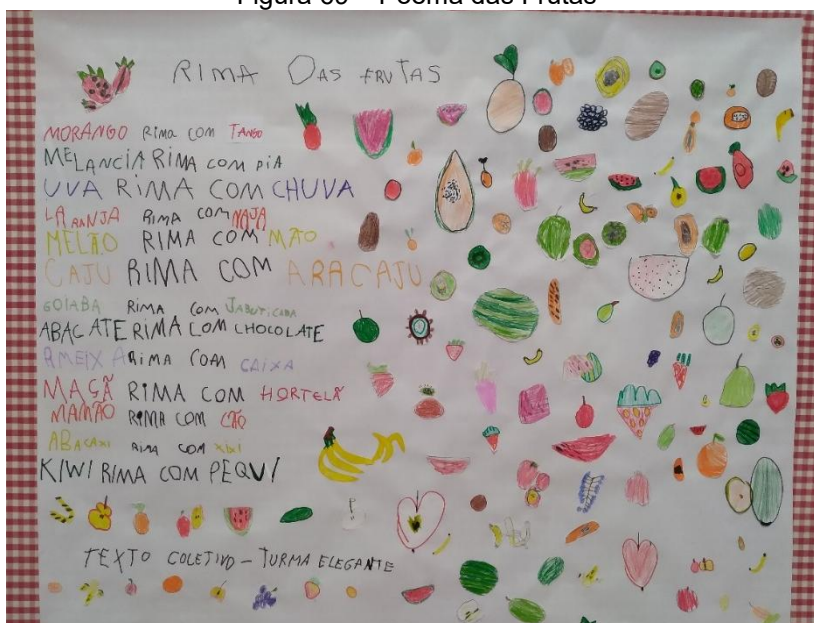 Figura 60 – Poema das Frutas
RIMA DAS FRUTAS
MORANGO RIMA COM TANGO
MELANCIA RIMA COM PIA
UVA RIMA COM CHUVA
LARANJA RIMA COM NAJA
MELÃO RIMA COM MÃO
CAJU RIMA COM ARACAJU
GOIABA RIMA COM JABUTICABA
ABACATE RIMA COM CHOCOLATE
AMEIXA RIMA COM CAIXA
MAÇÃ RIMA COM HORTELÃ
MAMÃO RIMA COM CÃO
ABACAXI RIMA COM XIXI
KIWI RIMA COM PEQUI
TEXTO COLETIVO – TURMA ELEGANTE